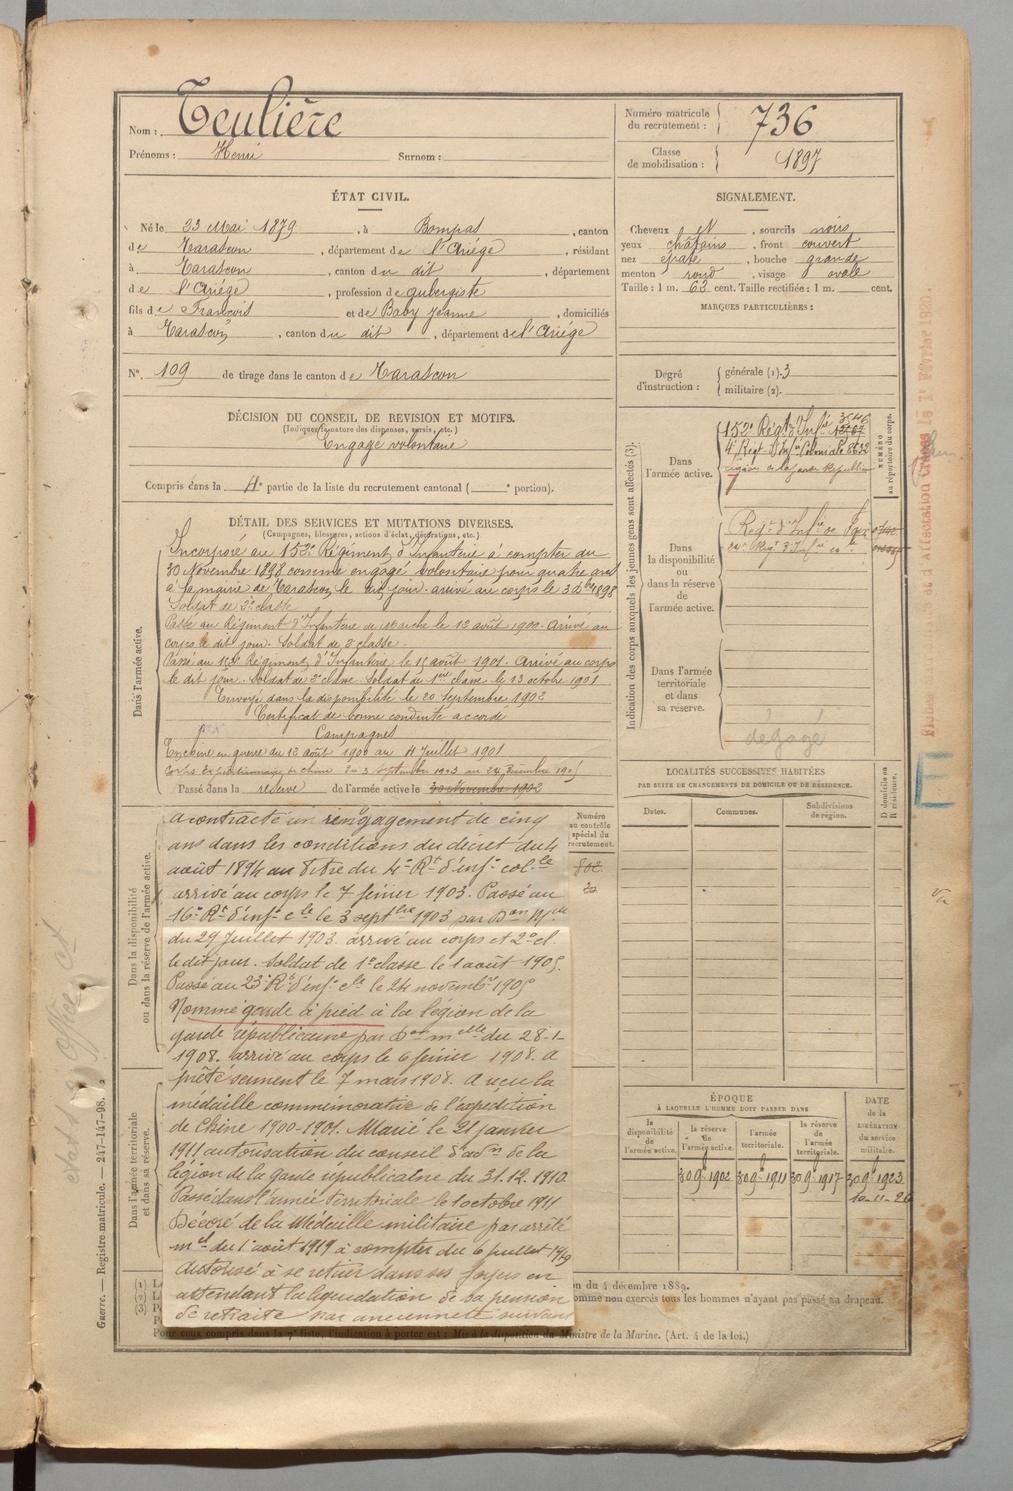 Nom : Teulière
Prénoms : Henri Surnom :
Numéro matricule du recrutement : 736
Classe de mobilisation : 1897
ÉTAT CIVIL.
Né le 23 Mai 1879, à Bompas, canton
de Tarascon, département de l'Ariége, résidant
à Tarascon, canton du dit, département
de l'Ariége, profession de aubergiste
fils de François et de Baby Jeanne, domiciliés
à Tarascon, canton du dit, département de l'Ariége
N° 109 de tirage dans le canton de Tarascon
SIGNALEMENT.
Cheveux et, sourcils noirs
yeux châtains, front couvert
nez épaté, bouche grande
menton rond, visage ovale
Taille : 1 m. 63 cent. Taille rectifiée : 1 m. cent.
MARQUES PARTICULIÈRES :
Degré d'instruction : générale (1). 3
militaire (2).
DÉCISION DU CONSEIL DE REVISION ET MOTIFS.
(Indiquer la nature des dispenses, sursis, etc.)
Engagé volontaire
Compris dans la 4e partie de la liste du recrutement cantonal ( e portion).
DÉTAIL DES SERVICES ET MUTATIONS DIVERSES.
(Campagnes, blessures, actions d'éclat, décorations, etc.)
Dans l'armée active.
Incorporé au 152e Régiment d'Infanterie à compter du
30 Novembre 1898 comme engagé volontaire pour quatre ans
à la mairie de Tarascon, le dit jour. arrivé au corps le 3 Xbre 1898
Soldat de 2e classe
Passé au Régiment d'Infanterie de Marche le 12 août 1900. Arrivé au
corps le dit jour. Soldat de 2e classe.
Passé au 152e Régiment d'Infanterie le 15 août 1901. Arrivé au corps
le dit jour. Soldat de 2e classe. Soldat de 1ere classe le 13 octobre 1901
Envoyé dans la disponibilité le 20 Septembre 1902
Certificat de bonne conduite accordé
Campagnes
En Chine en guerre du 12 août 1900 au 4 Juillet 1901
Corps Expéditionnaire de Chine du 3 septembre 1903 au 24 Décembre 1905
Passé dans la réserve de l'armée active le 30 Novembre 1902
Dans la disponibilité ou dans la réserve de l'armée active.
a contracté un rengagement de cinq
ans dans les conditions du décret du 4
août 1894 au titre du 4e Rt d'infie colle
arrivé au corps le 7 février 1903. Passé au
16e Rt d'infie cle le 3 septbre 1903 par Don Mlle
du 29 Juillet 1903. arrivé au corps et 2e cl.
le dit jour. Soldat de 1e classe le 1 août 1905.
Passé au 23e Rt d'infie cle le 24 novembre 1905
Nommé garde à pied à la légion de la
garde républicaine par Don mlle du 28-1-
1908. arrivé au corps le 6 février 1908. A
prêté serment le 7 mars 1908. A reçu la
médaille commémorative de l'expédition
de Chine 1900-1901. Marié le 21 janvier
1911 autorisation du conseil d'adon de la
légion de la garde républicaine du 31.12.1910.
Passé dans l'armée territoriale le 1 octobre 1911
Décoré de la Médaille militaire par arrêté
mel du 1er août 1919 à compter du 6 juillet 1919
Autorisé à se retirer dans ses foyers en
attendant la liquidation de sa pension
de retraite par ancienneté suivant
Dans l'armée territoriale et dans sa réserve.
Numéro au contrôle spécial du recrutement.
Indication des corps auxquels les jeunes gens sont affectés (3).
NUMÉRO au répertoire du corps.
Dans l'armée active.
152e Régt d'Infie 3546
4e Régt d'Infie Coloniale 8632
légion de la garde Républicaine
Dans la disponibilité ou dans la réserve de l'armée active.
Régt d'Infie de Foix
Dans l'armée territoriale et dans sa réserve.
dégagé
LOCALITÉS SUCCESSIVES HABITÉES
PAR SUITE DE CHANGEMENTS DE DOMICILE OU DE RÉSIDENCE.
Dates. Communes. Subdivisions de région. D domicile ou R résidence.
ÉPOQUE
À LAQUELLE L'HOMME DOIT PASSER DANS
la disponibilité de l'armée active.
la réserve de l'armée active.
l'armée territoriale.
la réserve de l'armée territoriale.
DATE de la LIBÉRATION du service militaire.
30 9bre 1902 30 9bre 1911 30 9bre 1917 30 9bre 1923
10-11-26
on du 4 décembre 1889.
omme non exercés tous les hommes n'ayant pas passé au drapeau.
Pour ceux compris dans la 7e liste, l'indication à porter est : Mis à la disposition du Ministre de la Marine. (Art. 4 de la loi.)
Guerre. — Registre matricule. — 247-147-98.
E